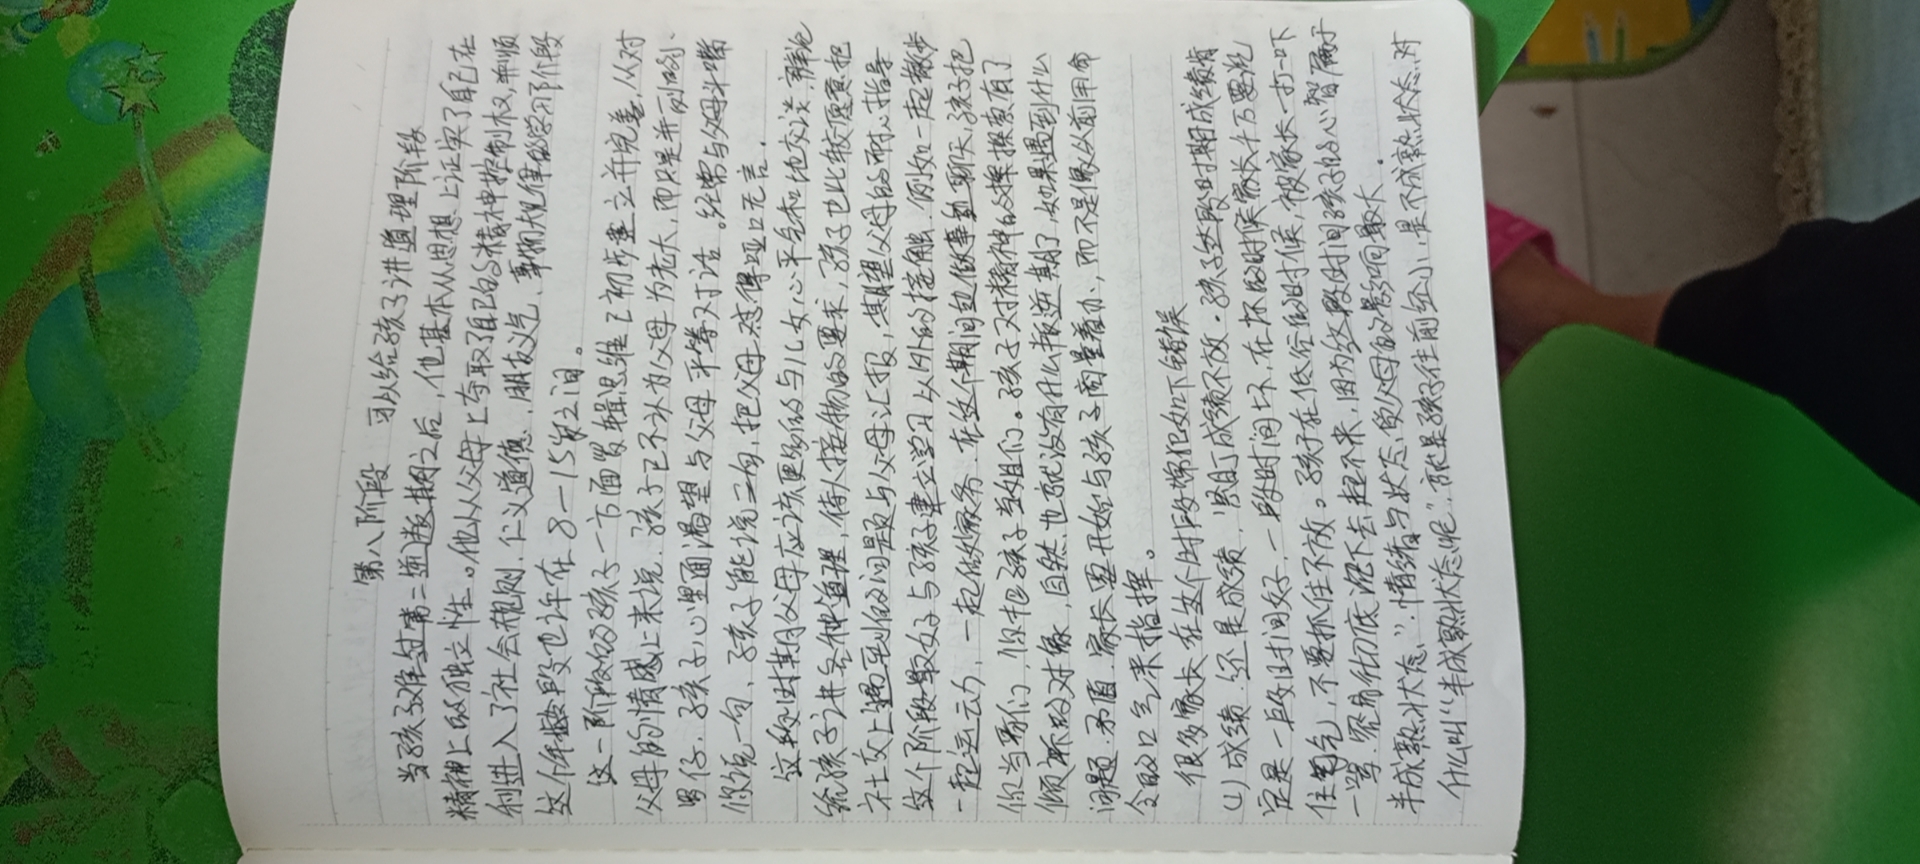 第八阶段 可以给孩子讲道理阶段
当孩子难过第二逆叛期之后,他基本从思想上证实了自己在
精神上的独立性。他从父母上夺取了自己的精神控制权,并顺
利进入了社会规则、仁义道德、朋友义气、事物规律的学习阶段
这个年龄段也许在8—15岁之间。
这一阶段的孩子一方面逻辑思维已初步建立并完善,从对
父母的情感上来说,孩子已不认为父母为老大,而只是并列的小
男仔,孩子心里面渴望与父母平等对话。经常与父母斗嘴
你说一句,孩子能说三句,把父母怼得哑口无言。
这段时期父母应该更多的与儿女心平气和地交谈,辩论
给孩子讲各种道理,待人接物的要求,孩子也比较愿意把
社交上遇到的问题与父母汇报,期望父母的耐心指导
这个阶段最好与孩子建立学习以外的接触,例如一起散步
一起运动,一起做家务,在这个期间边做事边聊天,孩子把
你当哥们,你把孩子当姐们。孩子又对精神的探索有了
倾诉的对象,自然,也就没有什么叛逆期了,如果遇到什么
问题,矛盾,家长要开始与孩子商量着办,而不是像以前用命
令的口气来指挥。
很多家长在这个时段常犯如下错误
(1)成绩,还是成绩,盯成绩不放。孩子这段时期成绩肯
定是一段时间好,一段时间坏,在坏的时候家长千万要沉
住气,不要抓住不放。孩子在低谷的时候,被家长一打一吓
一骂,容易彻底沉下去起不来,因为这段时间孩子的心智属于
半成熟状态,情绪与状态受父母的影响最大。
什么叫“半成熟状态呢”,就是孩子往前经小,是不成熟状态,对